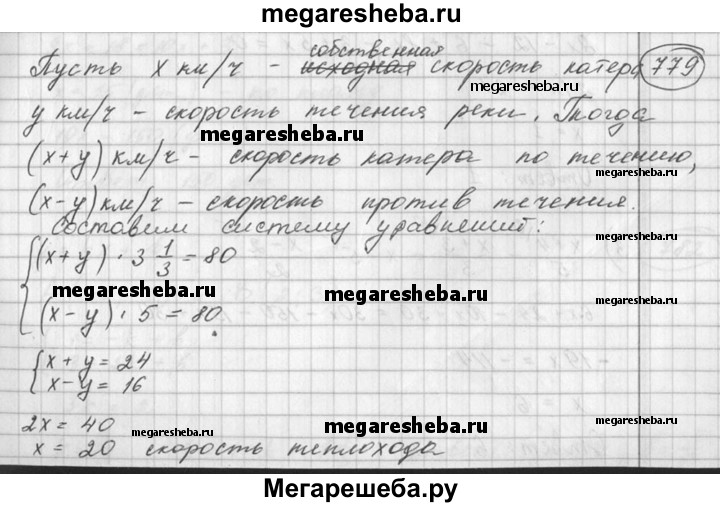 megaresheba.ru
собственная
Пусть x км/ч - исходная скорость катера 779
megaresheba.ru
y км/ч - скорость течения реки. Тогда
megaresheba.ru
megaresheba.ru
(x+y) км/ч - скорость катера по течению,
megaresheba.ru
(x-y) км/ч - скорость против течения.
Составим систему уравнений:
megaresheba.ru
(x+y) · 3 1/3 = 80
megaresheba.ru
megaresheba.ru
(x-y) · 5 = 80.
x + y = 24
megaresheba.ru
x - y = 16
2x = 40
megaresheba.ru
megaresheba.ru
megaresheba.ru
x = 20 скорость теплохода
Мегарешеба.ру